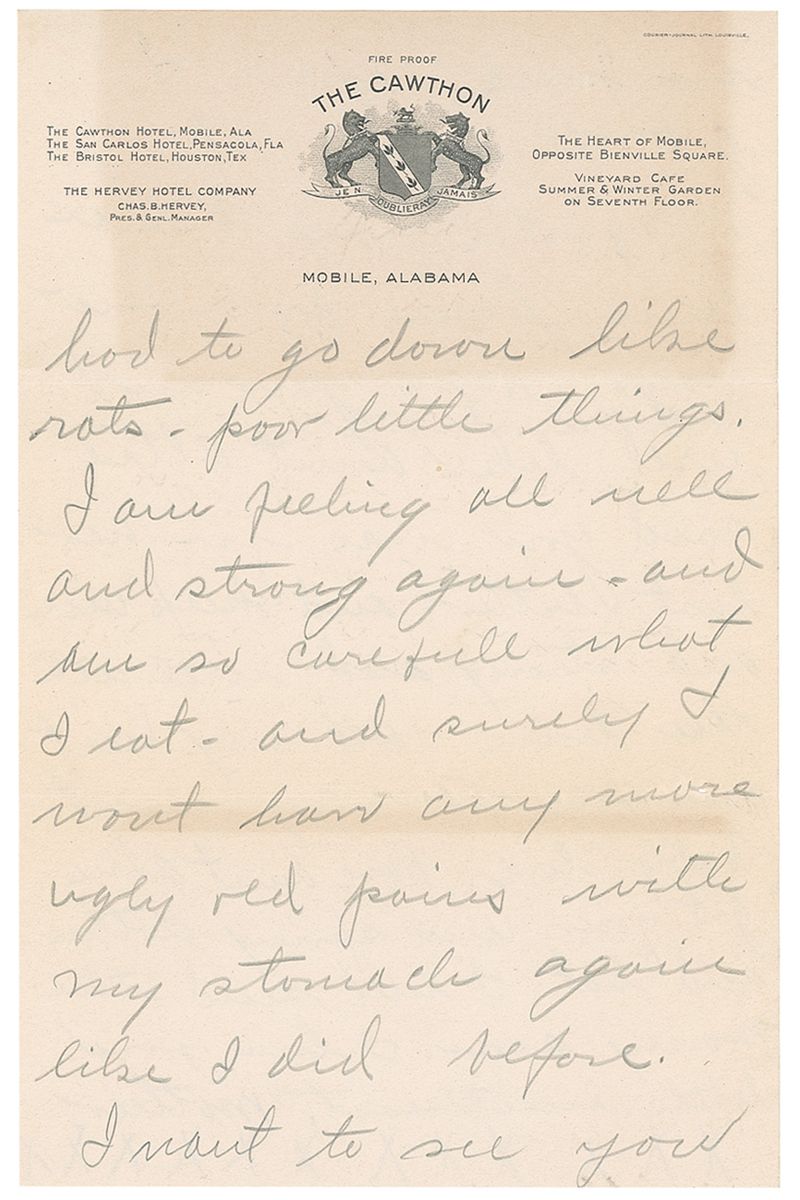 COURIER-JOURNAL LITH. LOUISVILLE.
FIRE PROOF
THE CAWTHON
THE CAWTHON HOTEL, MOBILE, ALA
THE SAN CARLOS HOTEL, PENSACOLA, FLA
THE BRISTOL HOTEL, HOUSTON, TEX
THE HERVEY HOTEL COMPANY
CHAS. B. HERVEY,
PRES. & GENL. MANAGER
JE N OUBLIERAY JAMAIS
THE HEART OF MOBILE,
OPPOSITE BIENVILLE SQUARE.
VINEYARD CAFE
SUMMER & WINTER GARDEN
ON SEVENTH FLOOR.
MOBILE, ALABAMA
had to go down like
rats - poor little things.
I am feeling all well
and strong again - and
am so carefull what
I eat - and surely I
wont have any more
ugly old pains with
my stomach again
like I did before.
I want to see you